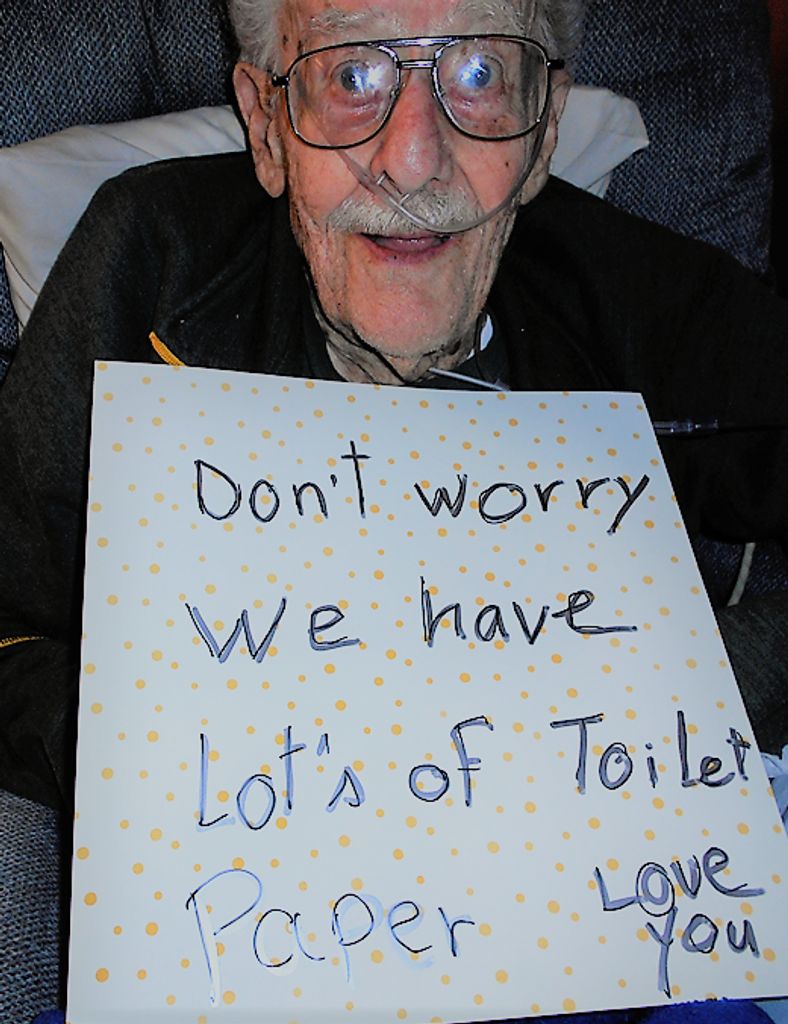 Don't worry
We have
Lot's of Toilet
Paper
Love
you